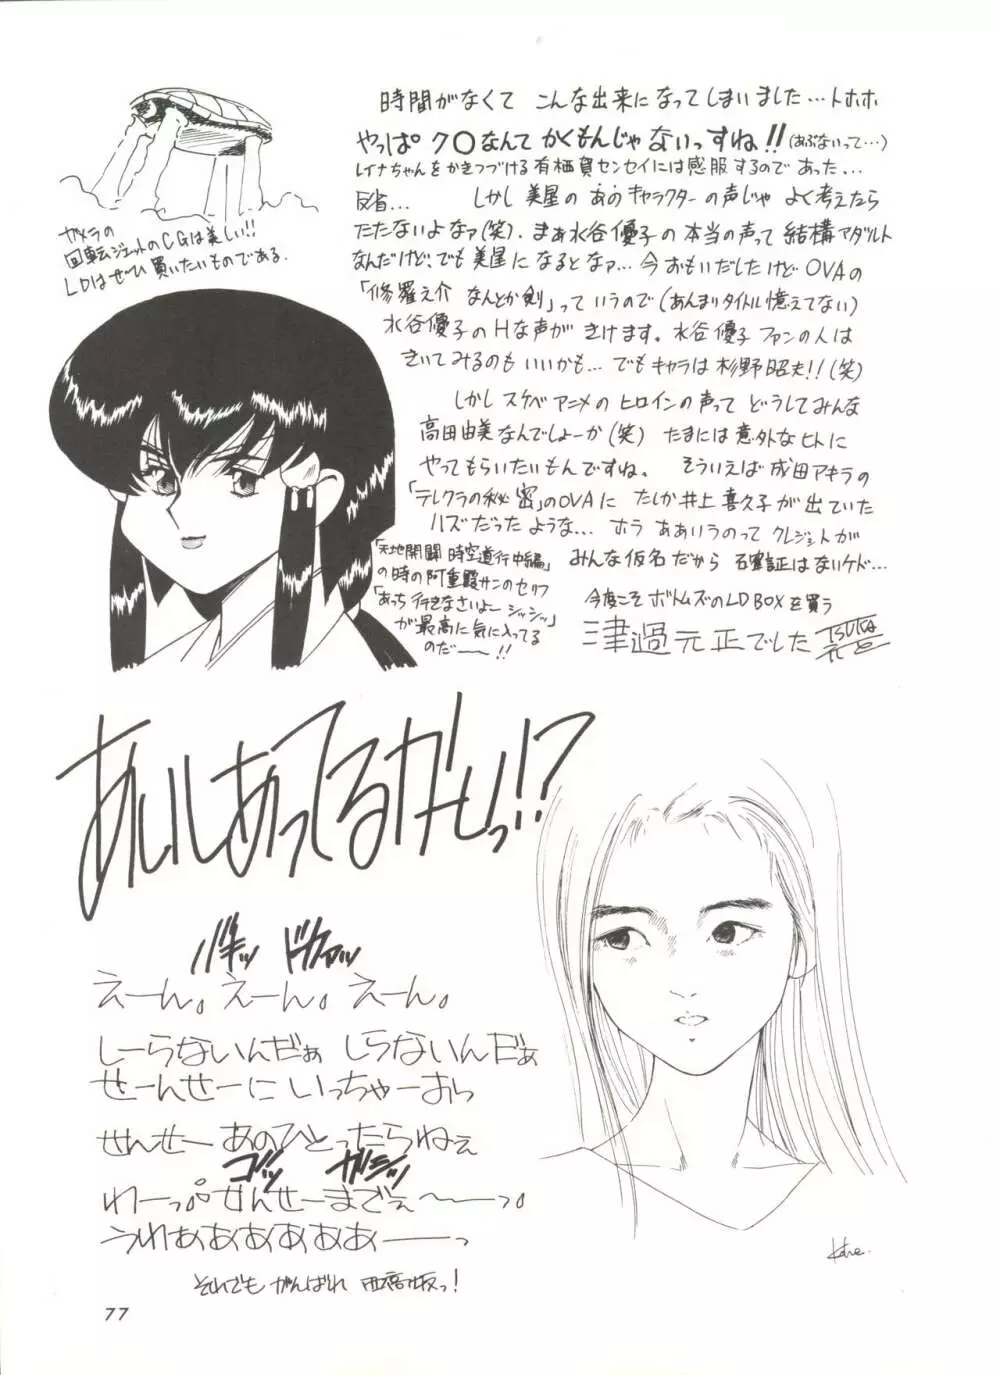 時間がなくて こんな出来になってしまいました…トホホ
やっぱ ク〇なんて かくもんじゃ ないっすね!!(あぶないって…)
レイナちゃんをかきつづける有栖賀センセイには感服するのであった…
反省… しかし美星のあのキャラクターの声じゃ よく考えたら
たたないよなァ(笑). まぁ水谷優子の本当の声って結構アダルト
なんだけど、でも美星になるとなァ…今おもいだしたけどOVAの
「修羅之介 なんとか剣」っていうので(あんまりタイトル憶えてない)
水谷優子のHな声がきけます。水谷優子ファンの人は
きいてみるのもいいかも…でもキャラは杉野昭夫!!(笑)
しかしスケベアニメのヒロインの声ってどうしてみんな
高田由美なんでしょーか(笑) たまには意外なヒトに
やってもらいたいもんですね。 そういえば成田アキラの
「テレクラの秘密」のOVAにたしか井上喜久子が出ていた
ハズだったような…ホラああいうのってクレジットが
みんな仮名だから確証はないケド…
今度こそボトムズのLD BOXを買う
津過元正でした
ガメラの
回転ジェットのCGは美しい!!
LDはぜひ買いたいものである.
「天地開闢 時空道行中編」
の時の阿重霞サンのセリフ
「あっち行きなさいよー シッシッ」
が最高に気に入ってる
のだー!!
あいしあってるかーいっ!?
バキッ ドカァッ
えーん。えーん。えーん。
しーらないんだぁ しらないんだぁ
せーんせーに いっちゃーおっ
せんせー あのひとったらねぇ
ゴッ ガシッ
わーっ。せんせーまでぇ〜ーっ。
うわぁああああああーっ
それでも がんばれ っ!
77